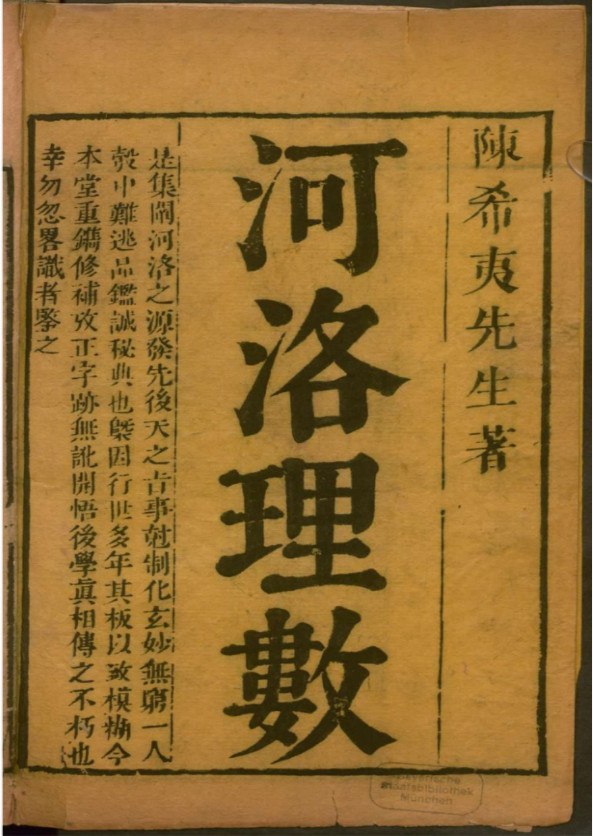 陳希夷先生著
河洛理數
是集闡河洛之源發先後天之旨事尅制化玄妙無窮一人
彀中難逃品鑑誠秘典也槩因行世多年其板以致模糊今
本堂重鐫修補攷正字跡無訛開悟後學真相傳之不朽也
幸勿忽畧識者鑒之
Bayerische
Staatsbibliothek
München